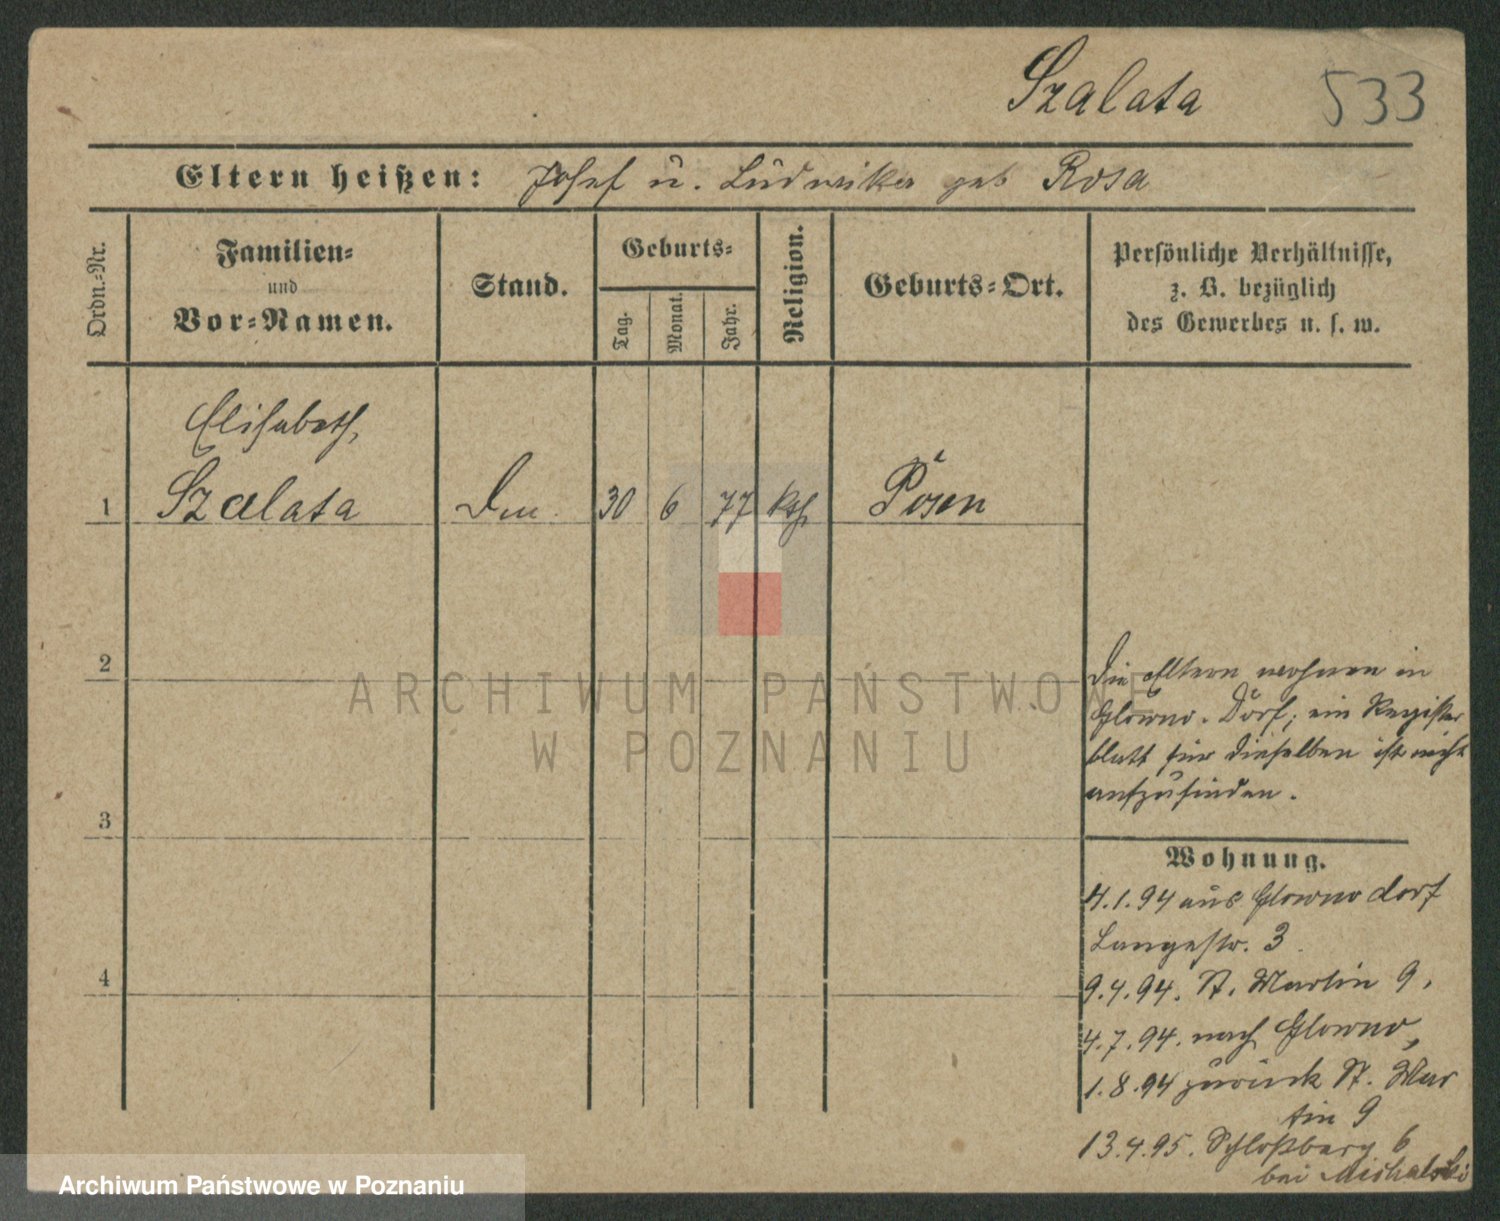 Szalata 533
Eltern heißen: Josef u. Ludwika geb Rosa
Ordn.-Nr.
Familien-
und
Vor-Namen.
Stand.
Geburts-
Tag.
Monat.
Jahr.
Religion.
Geburts-Ort.
Persönliche Verhältnisse,
z. B. bezüglich
des Gewerbes u. s. w.
Elisabeth
1 Szalata 30 6 77 kth Posen
2
3
4
Die Eltern wohnen in
Glowno-Dorf; ein Register
blatt für dieselben ist nicht
aufzufinden.
Wohnung.
4.1.94 aus Glowno dorf
Langestr. 3.
9.4.94. St. Martin 9,
4.7.94. nach Glowno,
1.8.94 zurück St. Mar
tin 9
13.4.95. Schloßberg 6
bei Michalski
ARCHIWUM PAŃSTWOWE
W POZNANIU
Archiwum Państwowe w Poznaniu